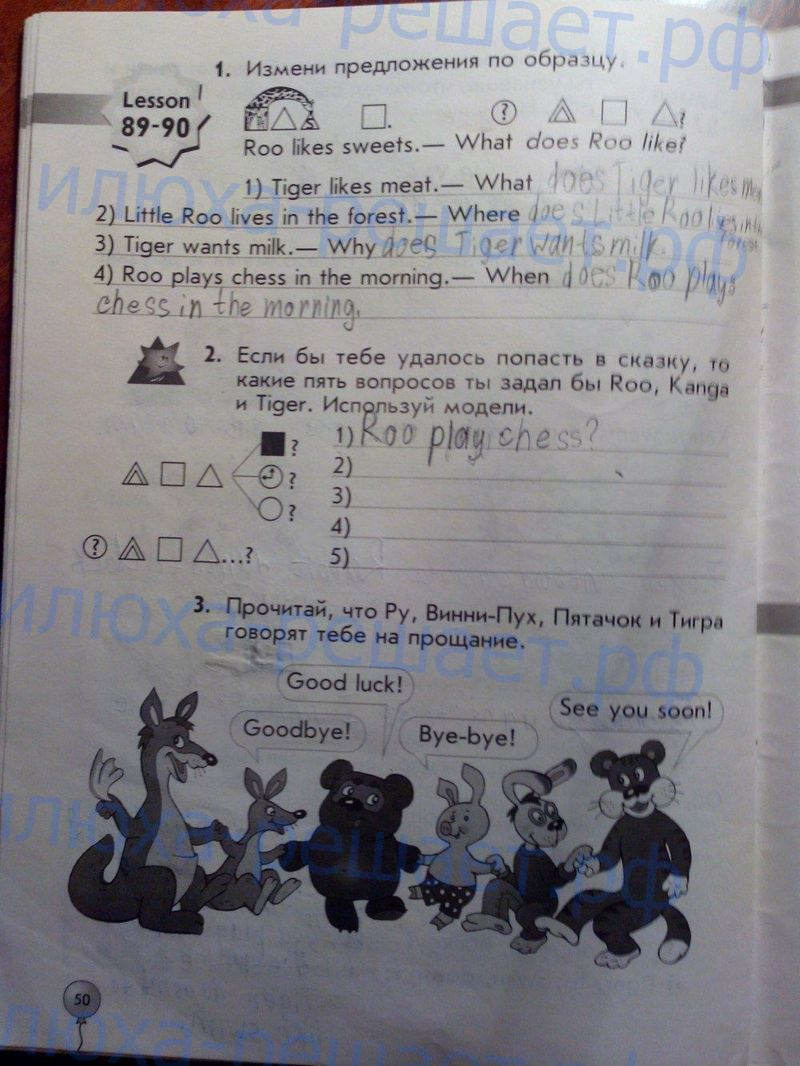 илюха-решает.рф
1. Измени предложения по образцу.
Lesson
89-90
Roo likes sweets.— What does Roo like?
1) Tiger likes meat.— What does Tiger likes
2) Little Roo lives in the forest.— Where does Little Roo
forest
3) Tiger wants milk.— Why does Tiger wants milk.
4) Roo plays chess in the morning.— When does Roo plays
chess in the morning.
2. Если бы тебе удалось попасть в сказку, то
какие пять вопросов ты задал бы Roo, Kanga
и Tiger. Используй модели.
? 1) Roo play chess?
? 2)
? 3)
4)
? ...? 5)
илюха-решает.рф
3. Прочитай, что Ру, Винни-Пух, Пятачок и Тигра
говорят тебе на прощание.
Good luck!
See you soon!
Goodbye!
Bye-bye!
илюха-решает.рф
50